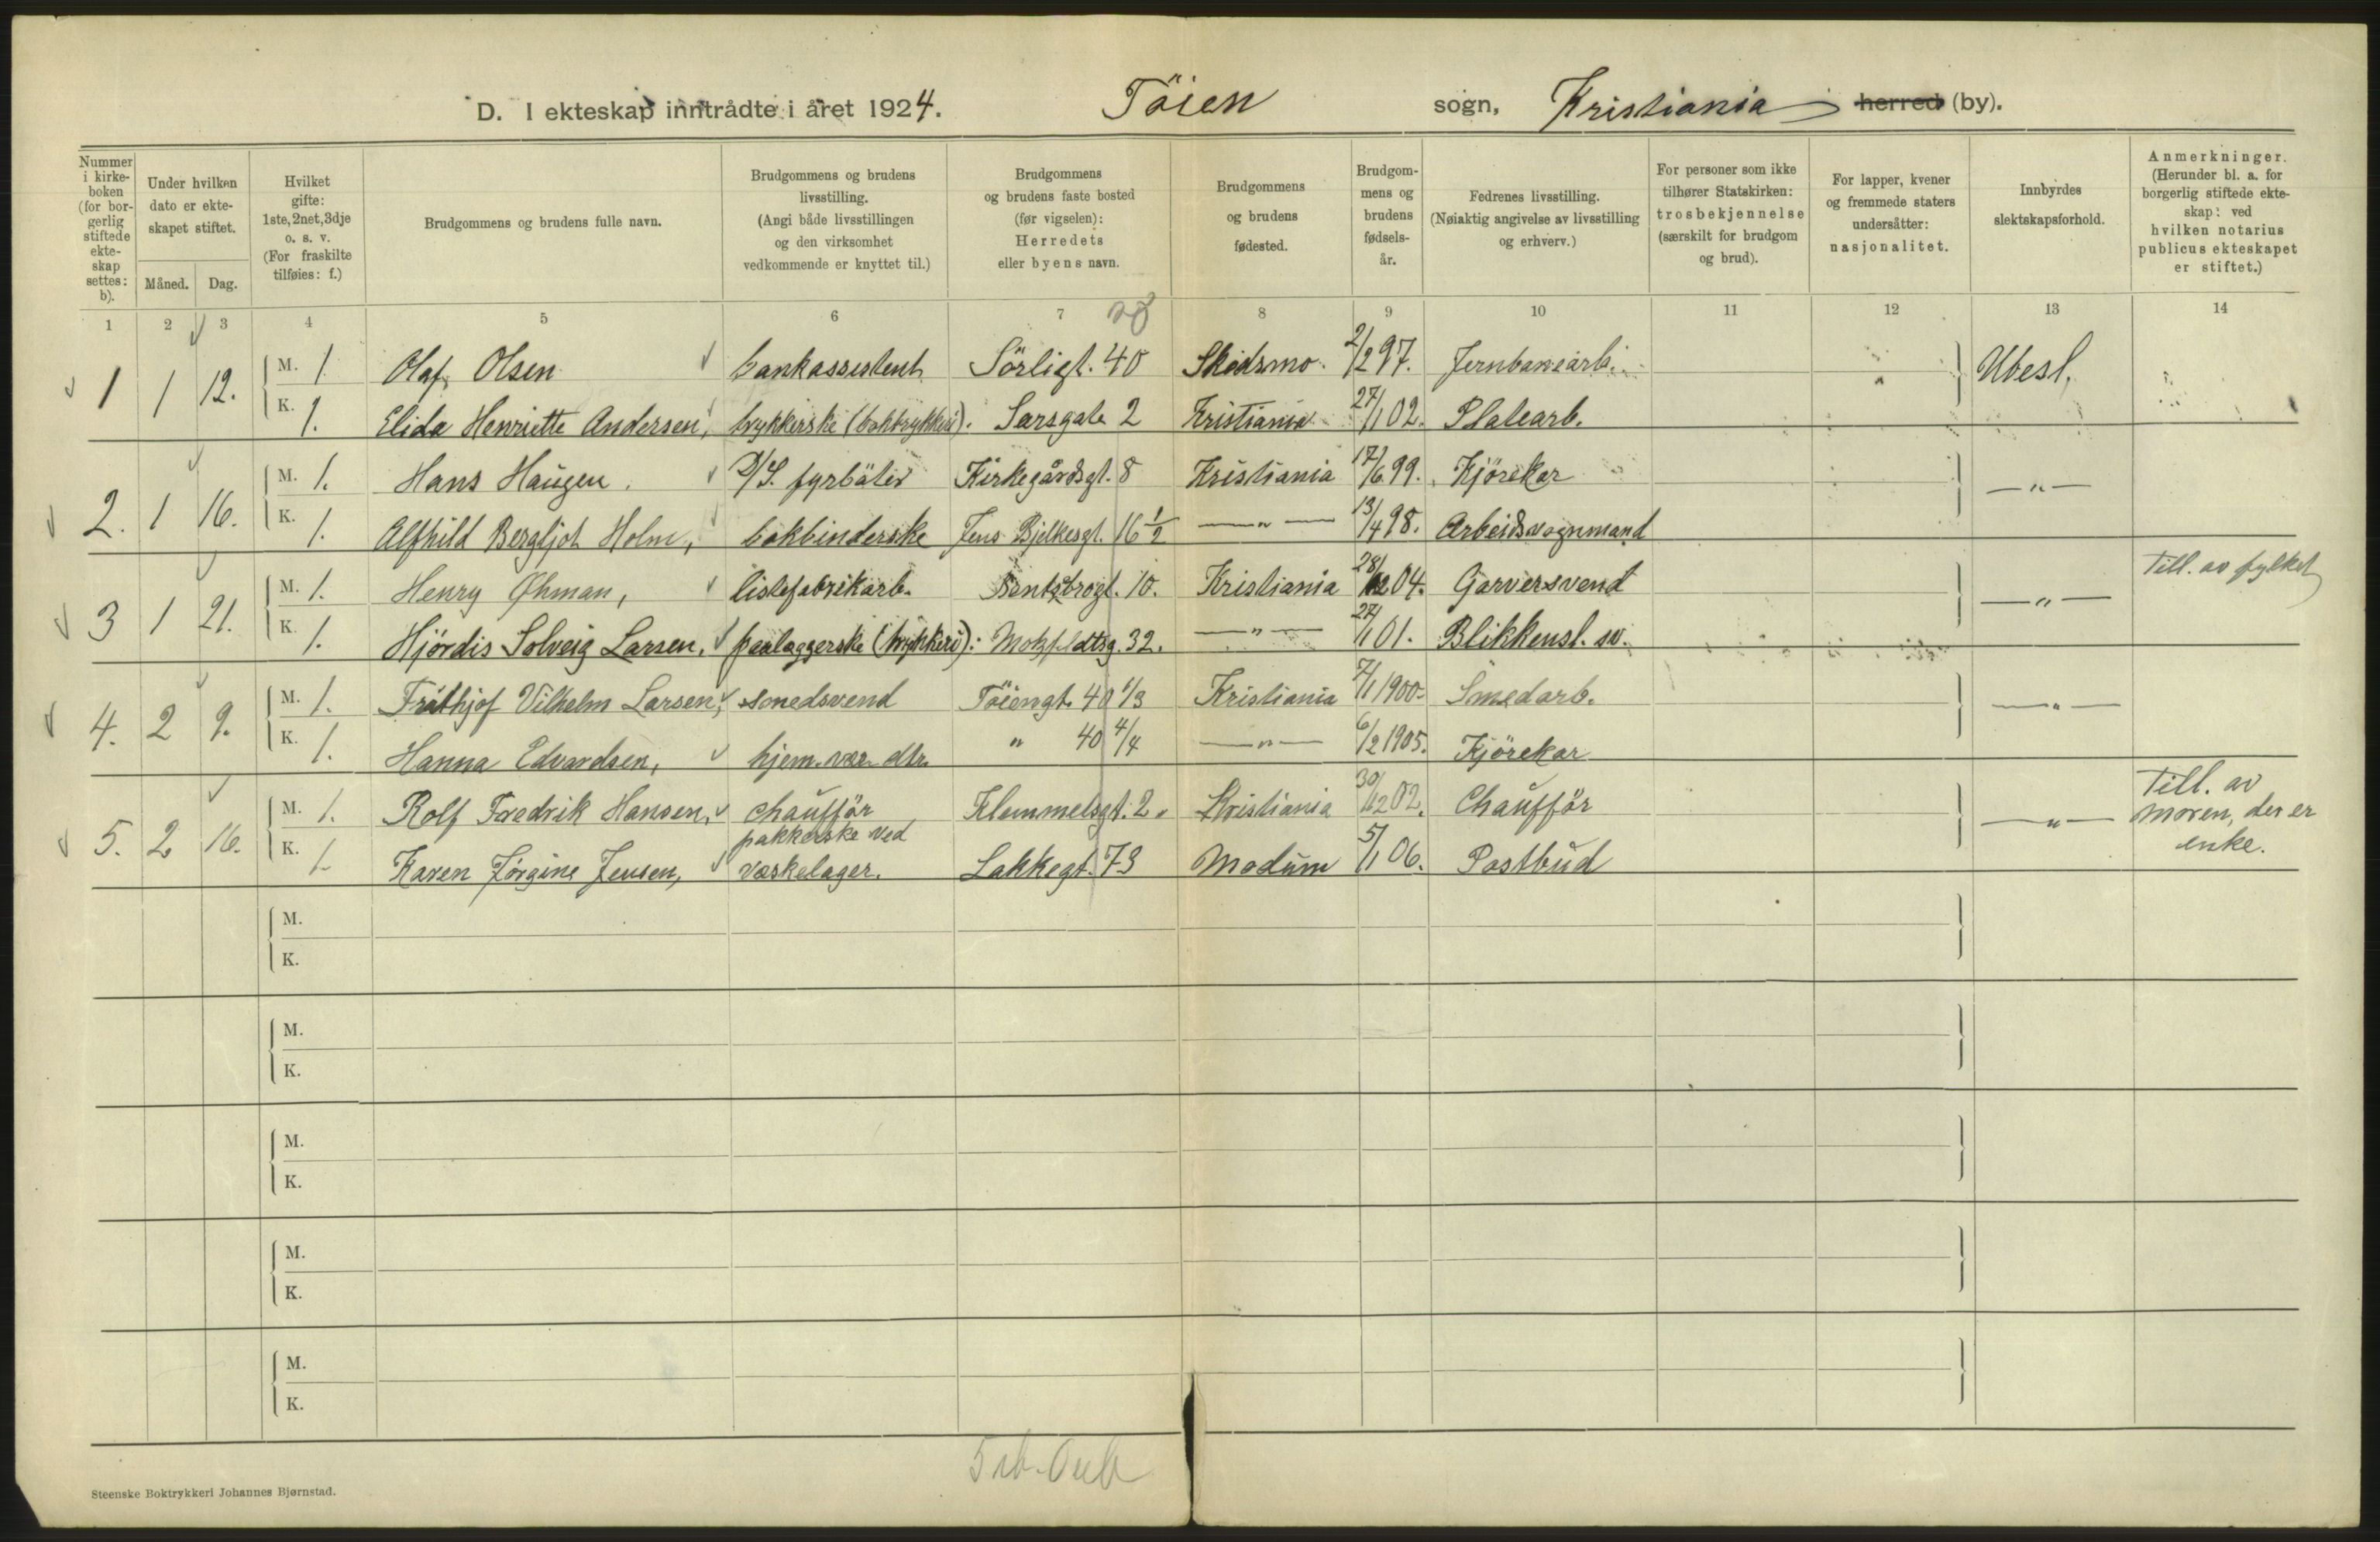 D. I ekteskap inntrådte i året 1924. Töien sogn, Kristiania herred (by).
Nummer i kirke-boken (for bor-gerlig stiftede ekte-skap settes: b).
Under hvilken dato er ekte-skapet stiftet.
Måned. Dag.
Hvilket gifte: 1ste, 2net, 3dje o. s. v. (For fraskilte tilføies: f.)
Brudgommens og brudens fulle navn.
Brudgommens og brudens livsstilling. (Angi både livsstillingen og den virksomhet vedkommende er knyttet til.)
Brudgommens og brudens faste bosted (før vigselen): Herredets eller byens navn.
Brudgommens og brudens fødested.
Brudgom-mens og brudens fødsels-år.
Fedrenes livsstilling. (Nøiaktig angivelse av livsstilling og erhverv.)
For personer som ikke tilhører Statskirken: trosbekjennelse (særskilt for brudgom og brud).
For lapper, kvener og fremmede staters undersåtter: nasjonalitet.
Innbyrdes slektskapsforhold.
Anmerkninger. (Herunder bl. a. for borgerlig stiftede ekte-skap: ved hvilken notarius publicus ekteskapet er stiftet.)
1 2 3 4 5 6 7 8 9 10 11 12 13 14
1 1 12. M. 1 Olaf Olsen bankassistent Sörligt. 40 Skedsmo. 2/2 97. Jernbanearb. Ubesl.
K. 1. Elida Henriette Andersen, trykkerske (boktrykkeri). Sarsgate 2 Kristiania 27/1 02. Platearb.
2. 1 16. M. 1. Hans Haugen. D/S. fyrbäter Kirkegårdsgt. 8 Kristiania 17/6 99. Kjörekar —"—
K. 1. Alfhild Bergljot Holm, bokbinderske Jens Bjelkesgt. 16 1/2 —"— 13/4 98. Arbeidsvognmand
3 1 21. M. 1. Henry Øhman, listefabrikarb. Bentsebrogt. 10. Kristiania 28/12 04. Garversvend —"— Till. av fylket
K. 1. Hjördis Solveig Larsen, paalæggerske (trykkeri): Motzfeldtsg. 32. —"— 27/1 01. Blikkensl. sv.
4. 2 9. M. 1. Frithjof Vilhelm Larsen, smedsvend Töiengt. 40 1/3 Kristiania 7/1 1900. Smedarb. —"—
K. 1. Hanna Edvardsen, hjem. vær. dtr. " 40 4/4 —"— 6/2 1905. Kjörekar
5. 2 16. M. 1. Rolf Fredrik Hansen, chaufför Klemmetsgt. 2. Kristiania 30/12 02. Chaufför —"— Till. av moren, der er enke.
K. 1. Karen Jörgine Jensen, pakkerske ved væskelager. Lakkegt. 73 Modum 5/1 06. Postbud
M.
K.
M.
K.
M.
K.
M.
K.
M.
K.
Steenske Boktrykkeri Johannes Bjørnstad.